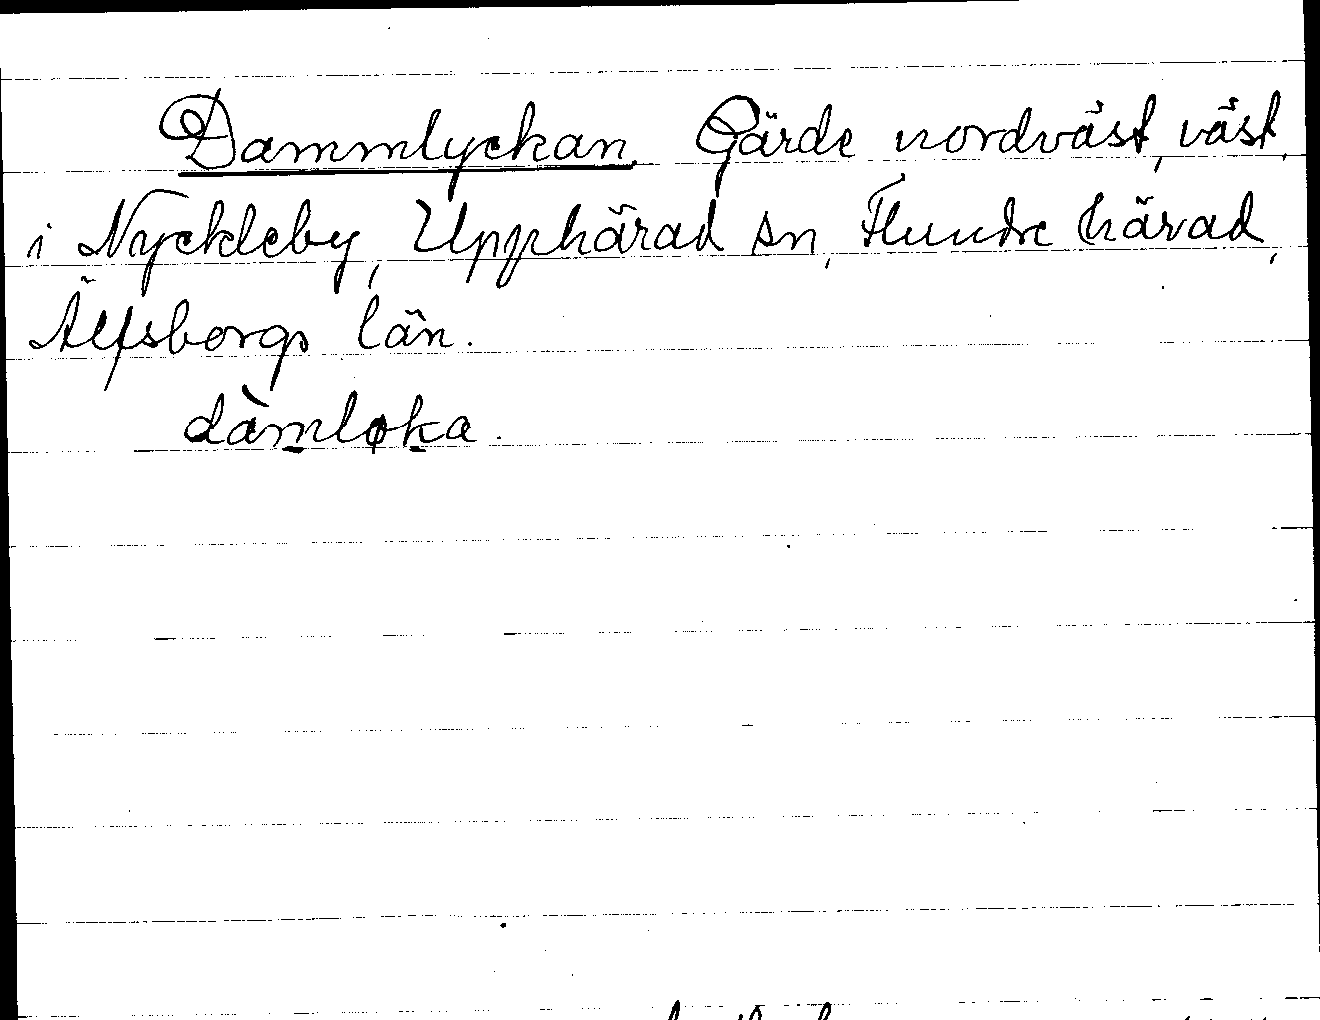 Dammlyckan. Gärde nordväst, väst,
i Nyckleby, Upphärad sn, Flundre härad,
Älfsborgs län.
dàmløka.